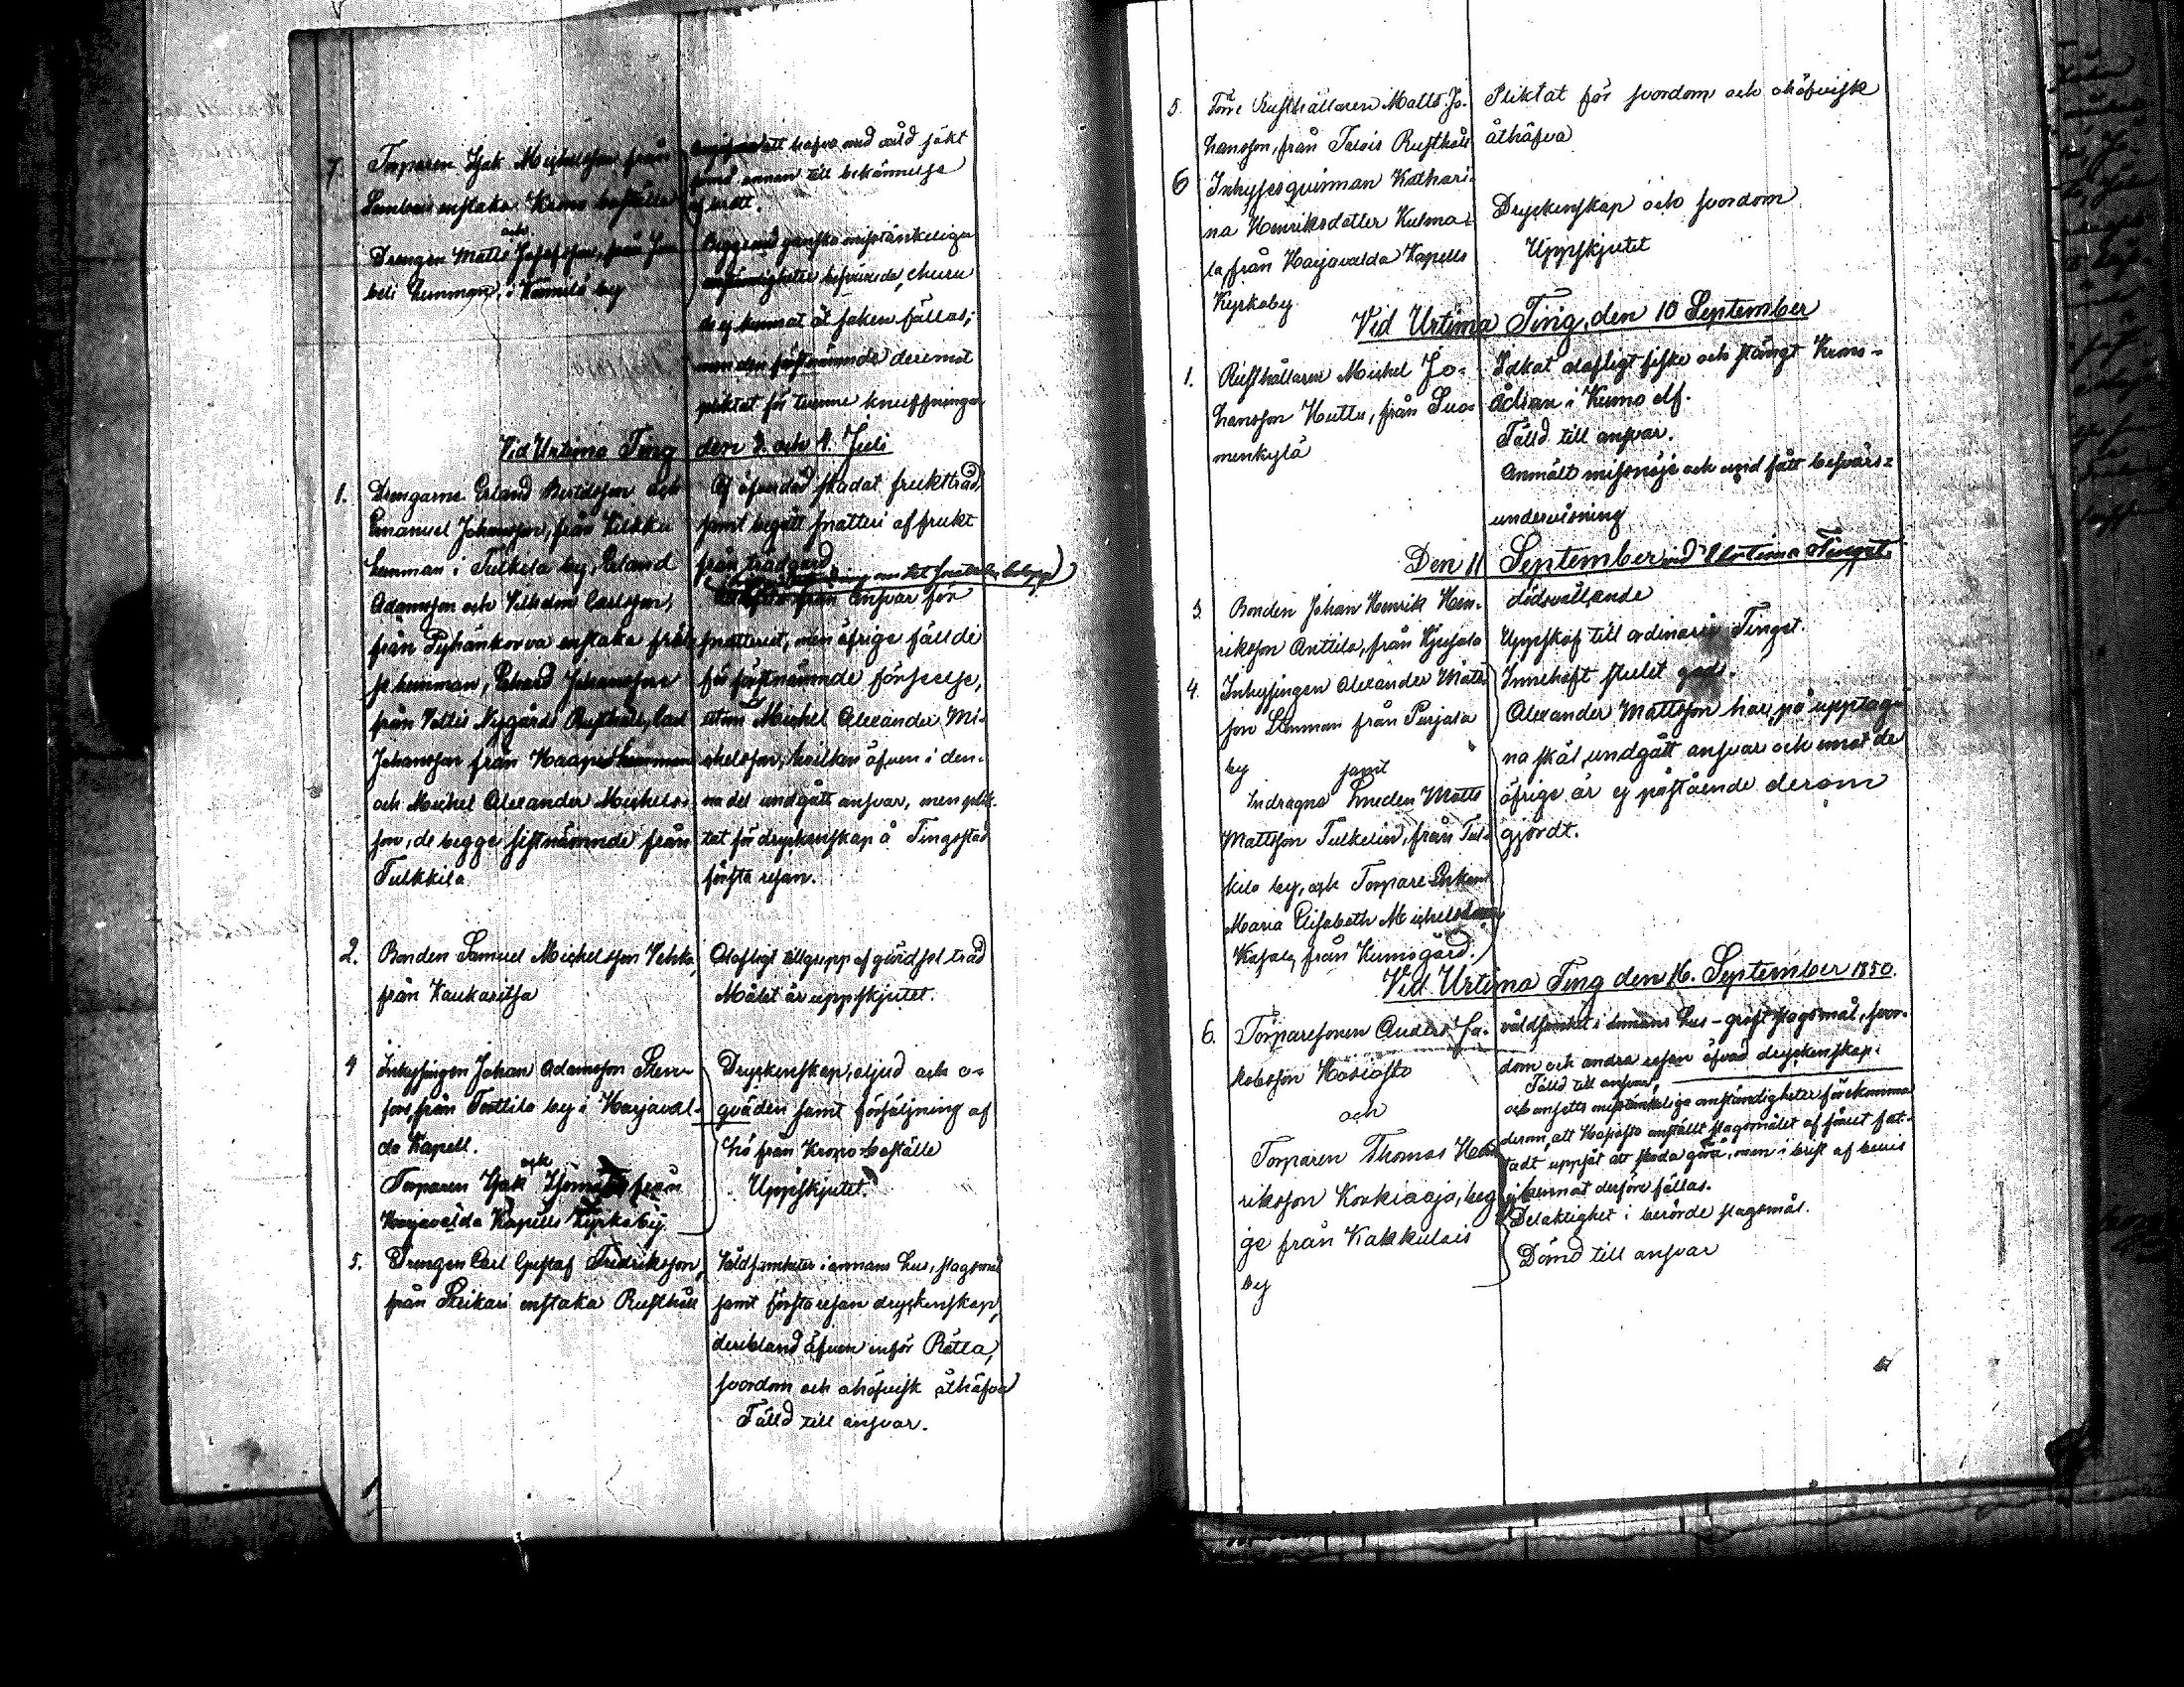 7. Torparen Isak Michelsson från
Lambais enstaka Krono boställe
och
Drengen Matts Josefsson, från
beli hemman, i Kämelä by
att hafva med våld sökt
annan till bekännelse
af brott.
Begge med ganska misstänkeliga
omständigheter besvärade, ehuru
de ej kunnat åt saken fällas;
men den sistnämnde deremot
pliktat för tvenne kneiffningar
Vid Urtima Ting den 3. och 4. Juli
1. Drengarne Erland Bertilsson och
Emanuel Johansson, från Vilkku
hemman i Tulkkila by, Erland
Adamsson och Vilhelm Carlsson,
från Pyhänkorva enstaka fräl-
se hemman, Johansson
från Vettis Nygårds Rusthåll, Carl
Johansson från Haapa hemman
och Michel Alexander Michels-
son, de begge sistnämnde från
Tulkkila
Af öfverdåd skadat fruktträd,
samt begått snatteri af frukt
från trädgård
från ansvar för
snatteriet, men öfrige fällde
för sistnämnde förseelse,
utom Michel Alexander Mi-
chelsson, hvilken äfven i den-
na del undgått ansvar, men plik-
tat för dryckenskap å Tingsstad
första resan.
2. Bonden Samuel Michelsson Vehka,
från Kaukaritsa
Olofligt tillgrepp af gärdsel träd
Målet är uppskjutet.
4 Inhysingen Johan Adamsson Sten-
fors från Torttila by i Harjaval-
da Kapell.
och
Torparen Isak från
Harjavalda Kapells Kyrkoby
Dryckenskap, oljud och o-
qväden samt försäljning af
hö från Krono-boställe
Uppskjutet.
5. Drengen Carl Gustaf Fredriksson,
från Leikari enstaka Rusthåll
Våldsamheter i annans hus, slagsmål
samt första resan dryckenskap,
deribland äfven inför Rätta,
svordom och ohöfvisk åthäfva
Fälld till ansvar.
5. Förre Rusthållaren Matts Jo-
hansson, från Talois Rusthåll
Pliktat för svordom och ohöfvisk
åthäfva
6 Inhysesqvinnan Kathari-
na Henriksdotter Kulma-
la, från Harjavalda Kapells
Kyrkoby
Dryckenskap och svordom
Uppskjutet
Vid Urtima Ting, den 10 September
1. Rusthållaren Michel Jo-
hansson Huttu, från Suo-
menkylä
Idkat olofligt fiske och stängt Krono-
ådran i Kumo elf.
Fälld till ansvar.
Anmält missnöje och und fått besvärs-
undervisning
Den 11 September vid Urtima Tinget
3. Bonden Johan Henrik Hen-
riksson Anttila, från Ljusjala
dödsvållande
Uppsköf till ordinarie Tinget.
4. Inhysingen Alexander Matts-
son Stenman från Purjala
by
samt
Indragna Smeden Matts
Mattsson Tulkelin, från Tul-
kila by, och Torpare Enkan
Maria Elisabeth Michelsdotter
Kasala, från Kumogård.
Innehaft stulet gods.
Alexander Mattsson har, på upptag-
na skäl, undgått ansvar och emot de
öfrige är ej påstående derom
gjordt.
Vid Urtima Ting den 16. September 1850.
6. Torparesonen Anders Ja-
kobsson Hosiasto
och
Torparen Thomas Hen-
riksson Korkiaoja, beg-
ge från Kakkulais
by
våldsamhet i annans hus - groft slagsmål, svor-
dom och andra resan öfvad dryckenskap.
Fälld till ansvar,
och ansetts misstänkelige omständigheter förekomma
derom, att Hosiasto anställt slagsmålet af förut fat-
tadt uppsåt att skada göra, men i brist af bevis
ej kunnat derföre fällas.
Delaktighet i berörde slagsmål.
Dömd till ansvar